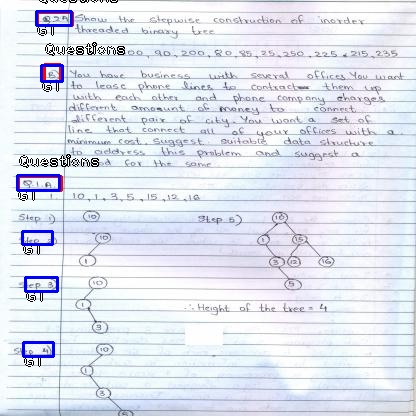 Q.2A) Show the stepwise construction of inorder
threaded binary tree
Questions
00, 90, 200, 80, 85, 25, 250, 225, 215, 235
B) You have business with several offices You want
to lease phone lines to contract them up
with each other and phone company charges
different amount of money to connect
different pair of city. You want a set of
line that connect all of your offices with a
minimum cost. suggest suitable data structure
to address this problem and suggest a
for the same.
Questions
Q.1.A)
10, 1, 3, 5, 15, 12, 16
Step 1) 10
Step 5) 10 1 15 3 12 16 5
10 1
Step 3) 10 1 3
∴ Height of the tree = 4
Step 4) 10 1 3 5